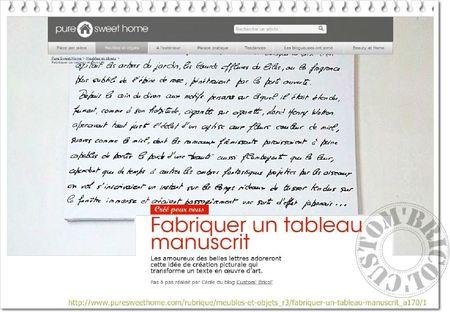 pure sweet home
Rechercher un article...
Pièce par pièce
Meubles et objets
A l'extérieur
Maison pratique
Tendances
Les blogueuses ont aimé
Beauty at Home
Pure Sweet Home > Meubles et objets >
agitait les arbres du jardin, les lourds effluves du lilas, ou la fragrance
plus subtile de l'épine de rose, pénétraient par la porte ouverte.
Depuis le coin du divan aux motifs persans sur lequel il était étendu,
fumant, comme à son habitude, cigarette sur cigarette, lord Henry Wotton
apercevait tout juste l'éclat d'un cytise aux fleurs couleur de miel,
suaves comme le miel, dont les rameaux frémissants paraissaient à peine
capables de porter le poids d'une beauté aussi flamboyante que la leur,
cependant que de temps à autre les ombres fantastiques projetées par les oiseaux
en vol s'inscrivaient un instant sur les longs rideaux de tussor tendus sur
la fenêtre immense et créaient passagèrement une sorte d'effet japonais...
Créé pour vous
Fabriquer un tableau
manuscrit
Les amoureux des belles lettres adoreront
cette idée de création picturale qui
transforme un texte en œuvre d'art.
Pas à pas réalisé par Cécile du blog Custom' Bricol'
CUSTOM'BRICOL'
http://www.puresweethome.com/rubrique/meubles-et-objets_r3/fabriquer-un-tableau-manuscrit_a170/1